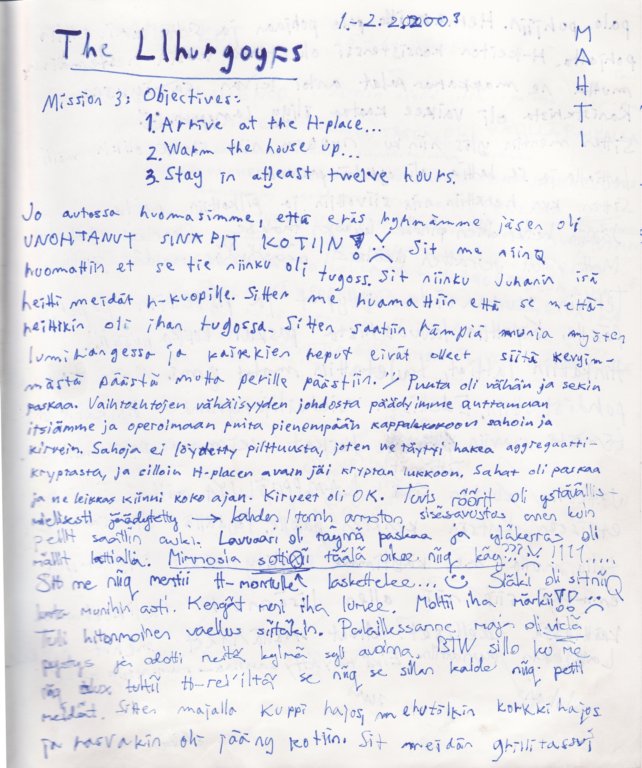 1.-2.2.2003
The Llhurgoyfs
MAHTI
Mission 3: Objectives:
1. Arrive at the H-place...
2. Warm the house up...
3. Stay in atleast twelve hours.
Jo autossa huomasimme, että eräs ryhmämme jäsen oli
UNOHTANUT SINAPIT KOTIIN! :( Sit me niinQ
huomattiin et se tie niinku oli tugoss. Sit niinku Juhanin isä
heitti meidät h-kuopille. Sitten me huomattiin että se mettä-
keittikin oli ihan tugossa. Sitten saatiin tämpiä munia myöten
lumihangessa ja kaikkien reput eivät olleet siitä kevyim-
mästä päästä mutta perille päästiin. // Puuta oli vähän ja sekin
paskaa. Vaihtoehtojen vähäisyyden johdosta päädyimme auttamaan
itsiämme ja operoimaan puita pienempään kappalekokoon sahoin ja
kirvein. Sahoja ei löydetty pilttuusta, joten ne täytyi hakea aggregaatti-
kryptasta, ja silloin H-placen avain jäi kryptan lukkoon. Sahat oli paskaa
ja ne leikkas kiinni koko ajan. Kirveet oli OK. Tuvis röörit oli ystävällis-
mielisesti jäädytetty → kahden tornin arvoton sisäsavustus ennen kuin
pellit saatiin auki. Lavuaari oli täynnä paskaa ja yläkerras oli
mällit lattialla. Mimmosia täälä oikee niiq käy??? :( !!!!....
Sit me niiq mentii H-montulle laskettelee... :) Stäki oli sit niiQ
lunta munihin asti. Kengät meni iha lumee. Molttii iha märkii!? :(
Tuli hitonmoinen vaellus siitäkin. Palaillessamme maja oli vielä
pystys ja odotti meitä kylmä syli avoinna. BTW sillo ku me
niiq tultii H-reiiltä se niiq se sillan kaide niiq petti
meidät. Sitten majalla kuppi hajos, mehutölkin korkki hajos
ja rasvakin oli jääny kotiin. Sit meidän grillitassu